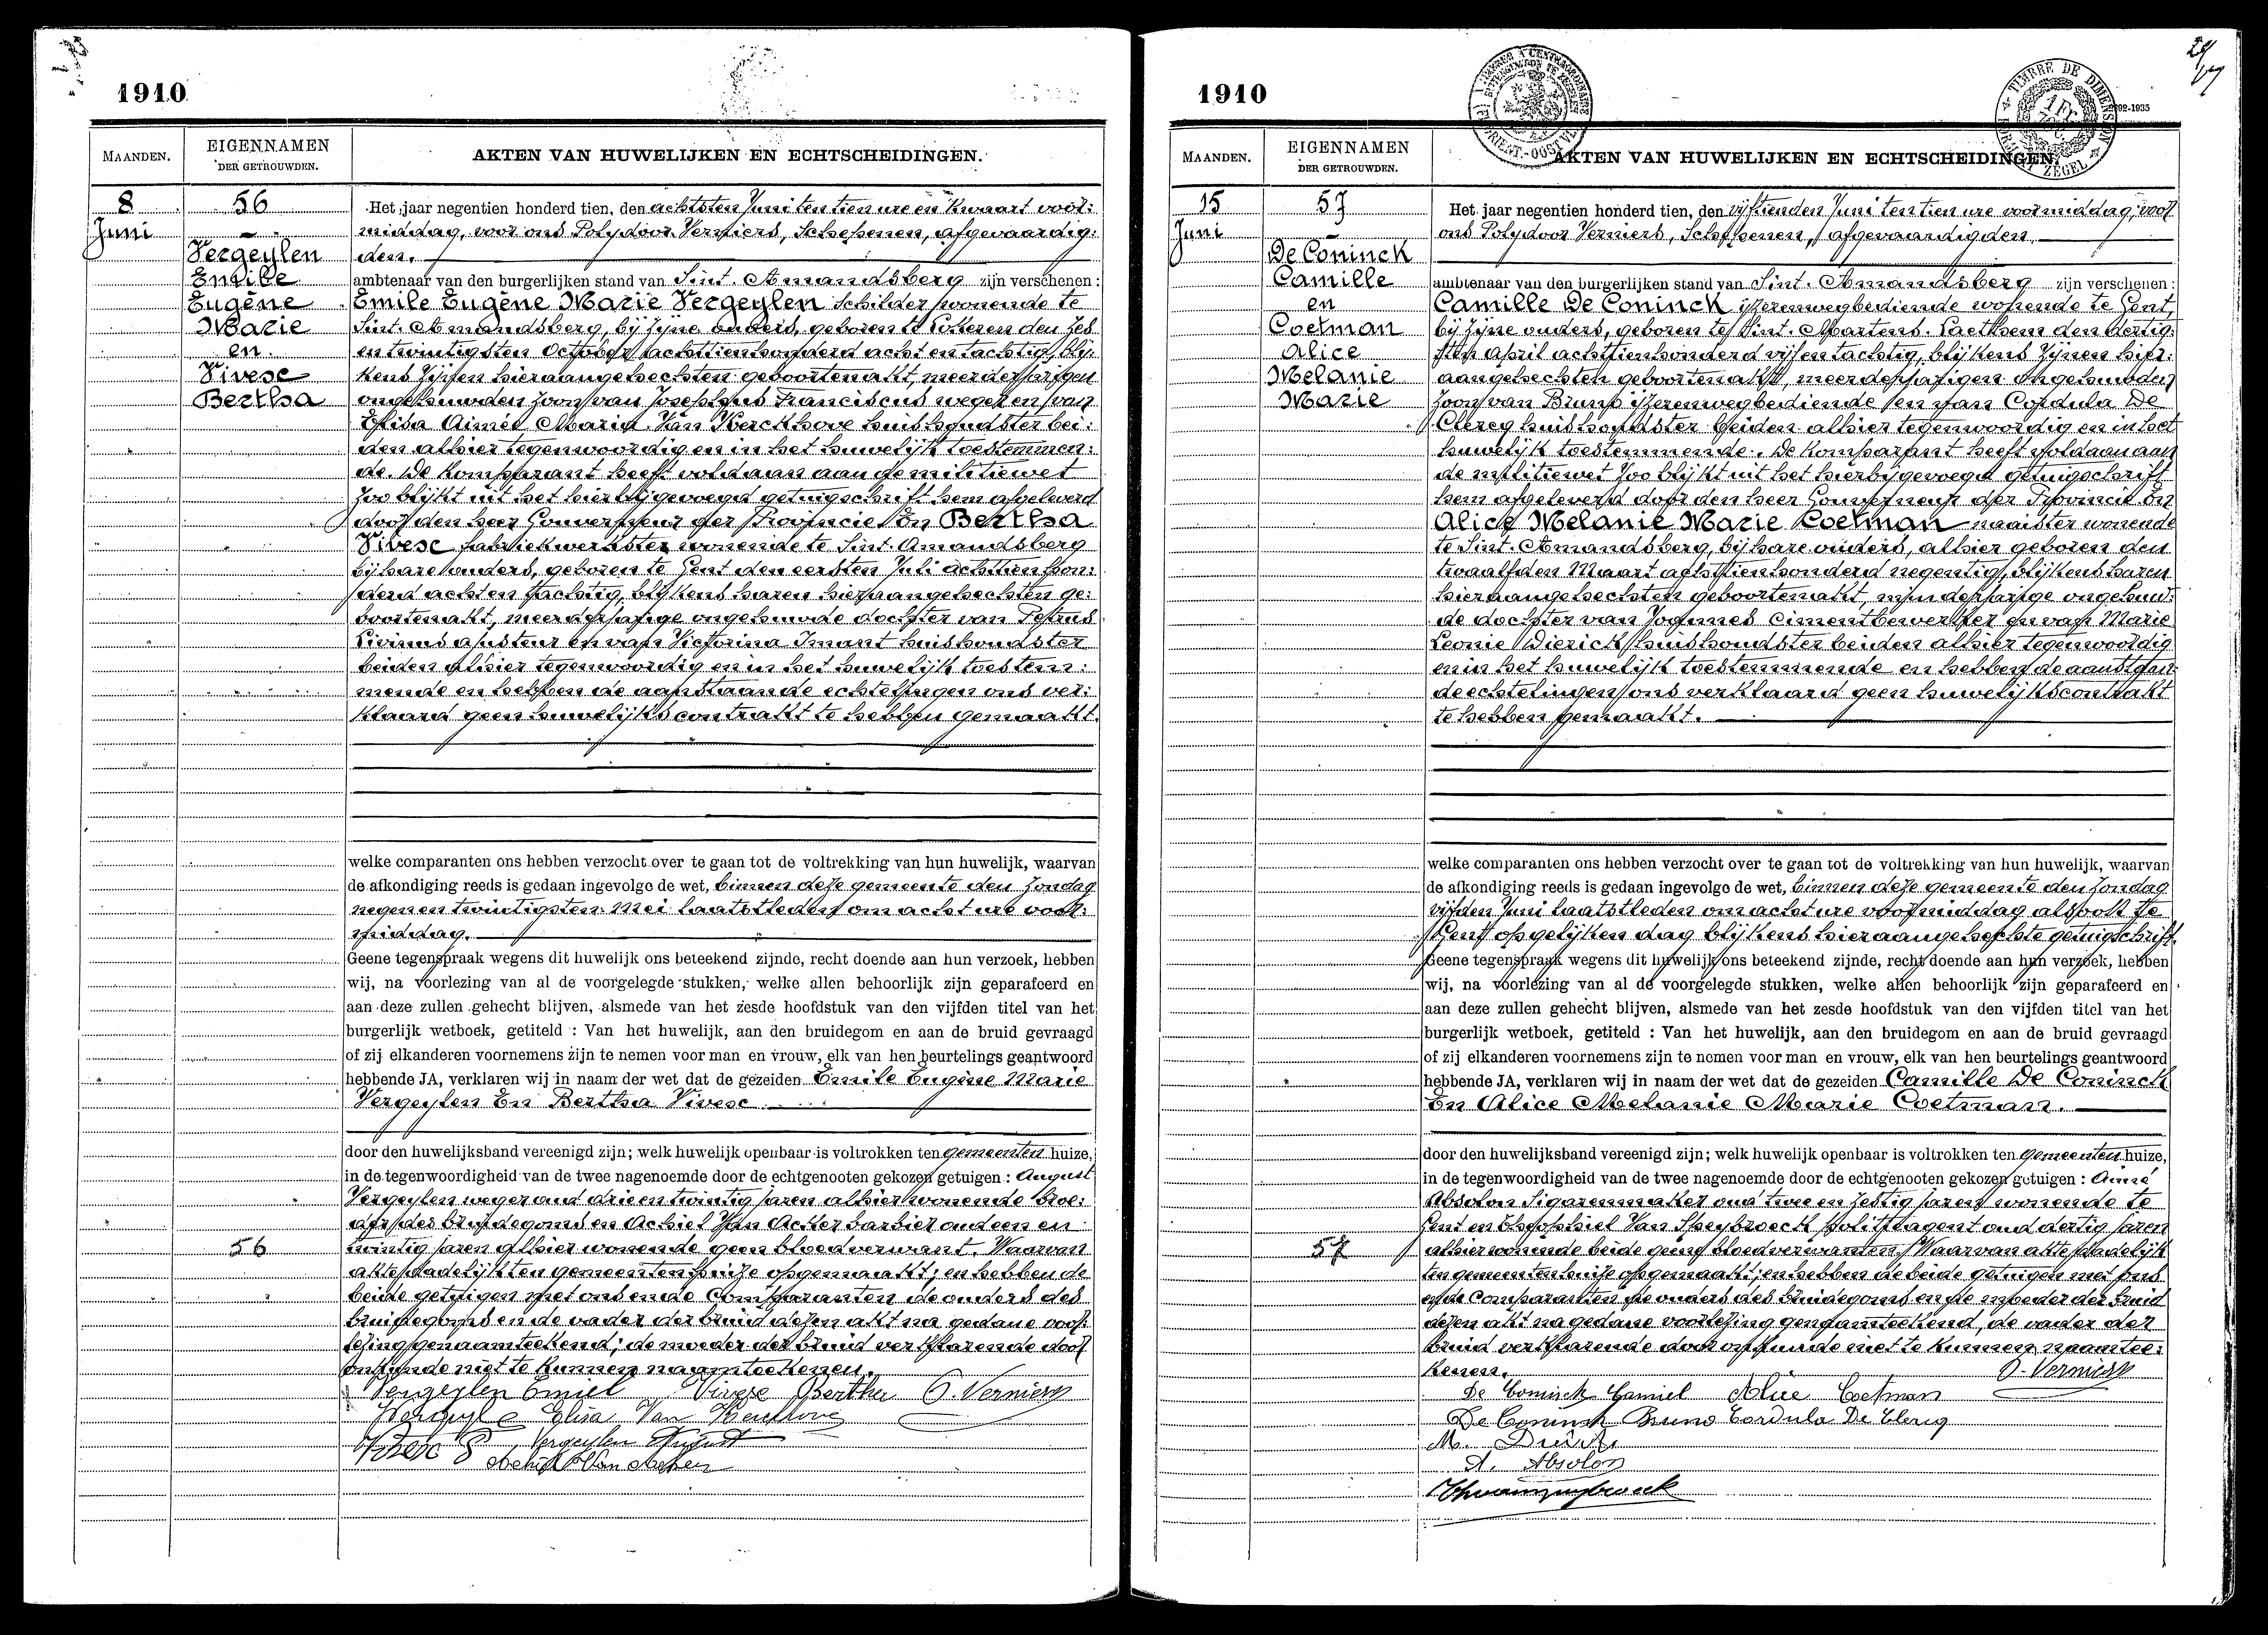 1910
MAANDEN.
EIGENNAMEN
DER GETROUWDEN.
AKTEN VAN HUWELIJKEN EN ECHTSCHEIDINGEN.
8
Juni
56
Vergeylen
Emile
Eugène
Marie
en
Vivese
Bertha
Het jaar negentien honderd tien, den achtsten Juni ten tien ure en kwaart voor:
middag, voor ons Polydoor Verniers, Schepenen, afgevaardig:
den.
ambtenaar van den burgerlijken stand van Sint. Amandsberg zijn verschenen:
Emile Eugène Marie Vergeylen schilder wonende te
Sint. Amandsberg, bij zijne ouders, geboren te den zes
en twintigsten October achttienhonderd acht en tachtig, blij:
kens zijnen hieraangehechten geboortenakt, meerderjarigen
ongehuwden zoon van Josephus Franciscus weger en van
Elisa Aimée Maria Van Kerckhove huishoudster bei:
den alhier tegenwoordig en in het huwelijk toestemmen:
de. De komparant heeft voldaan aan de militiewet
zoo blijkt uit het hierbijgevoegd getuigschrift hem afgeleverd
door den heer Gouverneur der Provincie En Bertha
Vivese fabriekwerkster wonende te Sint. Amandsberg
bij hare ouders, geboren te Gent den eersten Juli achttien hon:
derd acht en tachtig, blijkens haren hieraangehechten ge:
boortenakt, meerderjarige ongehuwde dochter van Petrus
Livinus ajusteur en van Victorina Imant huishoudster
beiden alhier tegenwoordig en in het huwelijk toestem:
mende en hebben de aanstaande echtelingen ons ver:
klaard geen huwelijkscontrakt te hebben gemaakt.
welke comparanten ons hebben verzocht over te gaan tot de voltrekking van hun huwelijk, waarvan
de afkondiging reeds is gedaan ingevolge de wet, binnen deze gemeente den Zondag
negen en twintigsten Mei laatstleden om acht ure voor:
middag.
Geene tegenspraak wegens dit huwelijk ons beteekend zijnde, recht doende aan hun verzoek, hebben
wij, na voorlezing van al de voorgelegde stukken, welke allen behoorlijk zijn geparafeerd en
aan deze zullen gehecht blijven, alsmede van het zesde hoofdstuk van den vijfden titel van het
burgerlijk wetboek, getiteld : Van het huwelijk, aan den bruidegom en aan de bruid gevraagd
of zij elkanderen voornemens zijn te nemen voor man en vrouw, elk van hen beurtelings geantwoord
hebbende JA, verklaren wij in naam der wet dat de gezeiden Emile Eugène Marie
Vergeylen En Bertha Vivese
door den huwelijksband vereenigd zijn; welk huwelijk openbaar is voltrokken ten gemeenten huize,
in de tegenwoordigheid van de twee nagenoemde door de echtgenooten gekozen getuigen : August
Vergeylen weger oud drie en twintig jaren alhier wonende broe:
der des bruidegoms en Achiel Van Acker barbier oud een en
56
twintig jaren alhier wonende geen bloedverwant. Waarvan
akte dadelijk ten gemeentenhuize opgemaakt; en hebben de
beide getuigen met ons en de Comparanten de ouders des
bruidegoms en de vader der bruid dezen akt na gedane voor:
lezing genaamteekend; de moeder der bruid verklarende door
onkunde niet te kunnen naamteekenen.
Vergeylen Emiel Vivese Bertha P. Verniers
Elisa Van Kerckhove
Vergeylen August
Achiel Van Acker
1910
MAANDEN.
EIGENNAMEN
DER GETROUWDEN.
AKTEN VAN HUWELIJKEN EN ECHTSCHEIDINGEN.
15
Juni
57
De Coninck
Camille
en
Coetman
Alice
Melanie
Marie
Het jaar negentien honderd tien, den vijftienden Juni ten tien ure voormiddag, voor
ons Polydoor Verniers, Schepenen, afgevaardigden
ambtenaar van den burgerlijken stand van Sint. Amandsberg zijn verschenen:
Camille De Coninck ijzerenwegbediende wonende te Gent,
bij zijne ouders, geboren te Sint. Martens. Laethem den dertig:
sten april achttienhonderd vijf en tachtig, blijkens zijnen hier:
aangehechten geboortenakt, meerderjarigen ongehuwden
zoon van Bruno ijzerenwegbediende en van Cordula De
Clercq huishoudster beiden alhier tegenwoordig en in het
huwelijk toestemmende. De komparant heeft voldaan aan
de militiewet zoo blijkt uit het hierbijgevoegd getuigschrift
hem afgeleverd door den heer Gouverneur der Provincie En
Alice Melanie Marie Coetman naaister wonende
te Sint. Amandsberg, bij hare ouders, alhier geboren den
twaalfden Maart achttienhonderd negentig, blijkens haren
hieraangehechten geboortenakt, minderjarige ongehuw:
de dochter van Joannes Cimentbewerker en van Marie
Leonie Dierick huishoudster beiden alhier tegenwoordig
en in het huwelijk toestemmende en hebben de aanstaan:
de echtelingen ons verklaard geen huwelijkscontrakt
te hebben gemaakt.
welke comparanten ons hebben verzocht over te gaan tot de voltrekking van hun huwelijk, waarvan
de afkondiging reeds is gedaan ingevolge de wet, binnen deze gemeente den Zondag
vijfden Juni laatstleden om acht ure voormiddag alsook te
Gent op gelijken dag blijkens hieraangehechte getuigschrift.
Geene tegenspraak wegens dit huwelijk ons beteekend zijnde, recht doende aan hun verzoek, hebben
wij, na voorlezing van al de voorgelegde stukken, welke allen behoorlijk zijn geparafeerd en
aan deze zullen gehecht blijven, alsmede van het zesde hoofdstuk van den vijfden titel van het
burgerlijk wetboek, getiteld : Van het huwelijk, aan den bruidegom en aan de bruid gevraagd
of zij elkanderen voornemens zijn te nemen voor man en vrouw, elk van hen beurtelings geantwoord
hebbende JA, verklaren wij in naam der wet dat de gezeiden Camille De Coninck
En Alice Melanie Marie Coetman.
door den huwelijksband vereenigd zijn; welk huwelijk openbaar is voltrokken ten gemeenten huize,
in de tegenwoordigheid van de twee nagenoemde door de echtgenooten gekozen getuigen : Aimé
Absolon Sigarenmaker oud twee en zestig jaren wonende te
Gent en Theophiel Van Speybroeck politieagent oud dertig jaren
57
alhier wonende beide geene bloedverwanten. Waarvan akte dadelijk
ten gemeentenhuize opgemaakt; en hebben de beide getuigen met ons
en de Comparanten de ouders des bruidegoms en de moeder der bruid
dezen akt na gedane voorlezing genaamteekend, de vader der
bruid verklarende door onkunde niet te kunnen naamtee:
kenen. P. Verniers
De Coninck Camiel Alice Coetman
De Coninck Bruno Cordula De Clercq
M. Dierick
A. Absolon